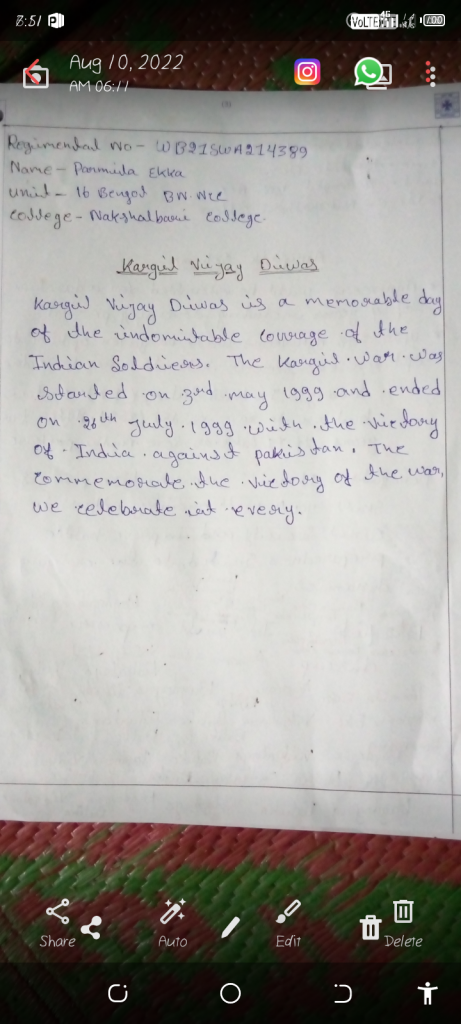 Aug 10, 2022
AM 06:11
Regimental No - WB21SWA214389
Name - Parmila Ekka
Unit - 16 Bengal BN NCC
College - Nakshalbari College
Kargil Vijay Diwas
Kargil Vijay Diwas is a memorable day
of the indomitable courage of the
Indian Soldiers. The Kargil war was
started on 3rd may 1999 and ended
on 26th July 1999 with the victory
of India against pakistan. The
commemorate the victory of the war,
we celebrate it every.
Share
Auto
Edit
Delete